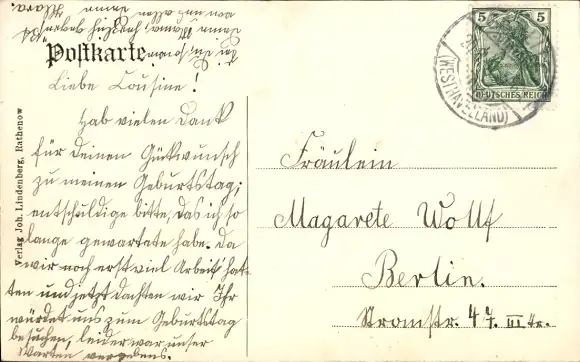 Postkarte
Liebe Cousine!
Hab vielen Dank
für Deinen Gückwunsch
zu meinen Geburtstag;
entschuldige bitte, das ich so
lange gewartete habe. Da
wir noch erst viel Arbeit hat-
ten und jetzt dachten wir Ihr
würdet uns zum Geburtstag
besuchen, leider war unser
Warten vergebens.
Verlag Joh. Lindenberg, Rathenow
5 5
DEUTSCHES REICH
(WESTHAVELLAND)
Fräulein
Magarete Wolff
Berlin.
Stromstr. 47. III Tr.